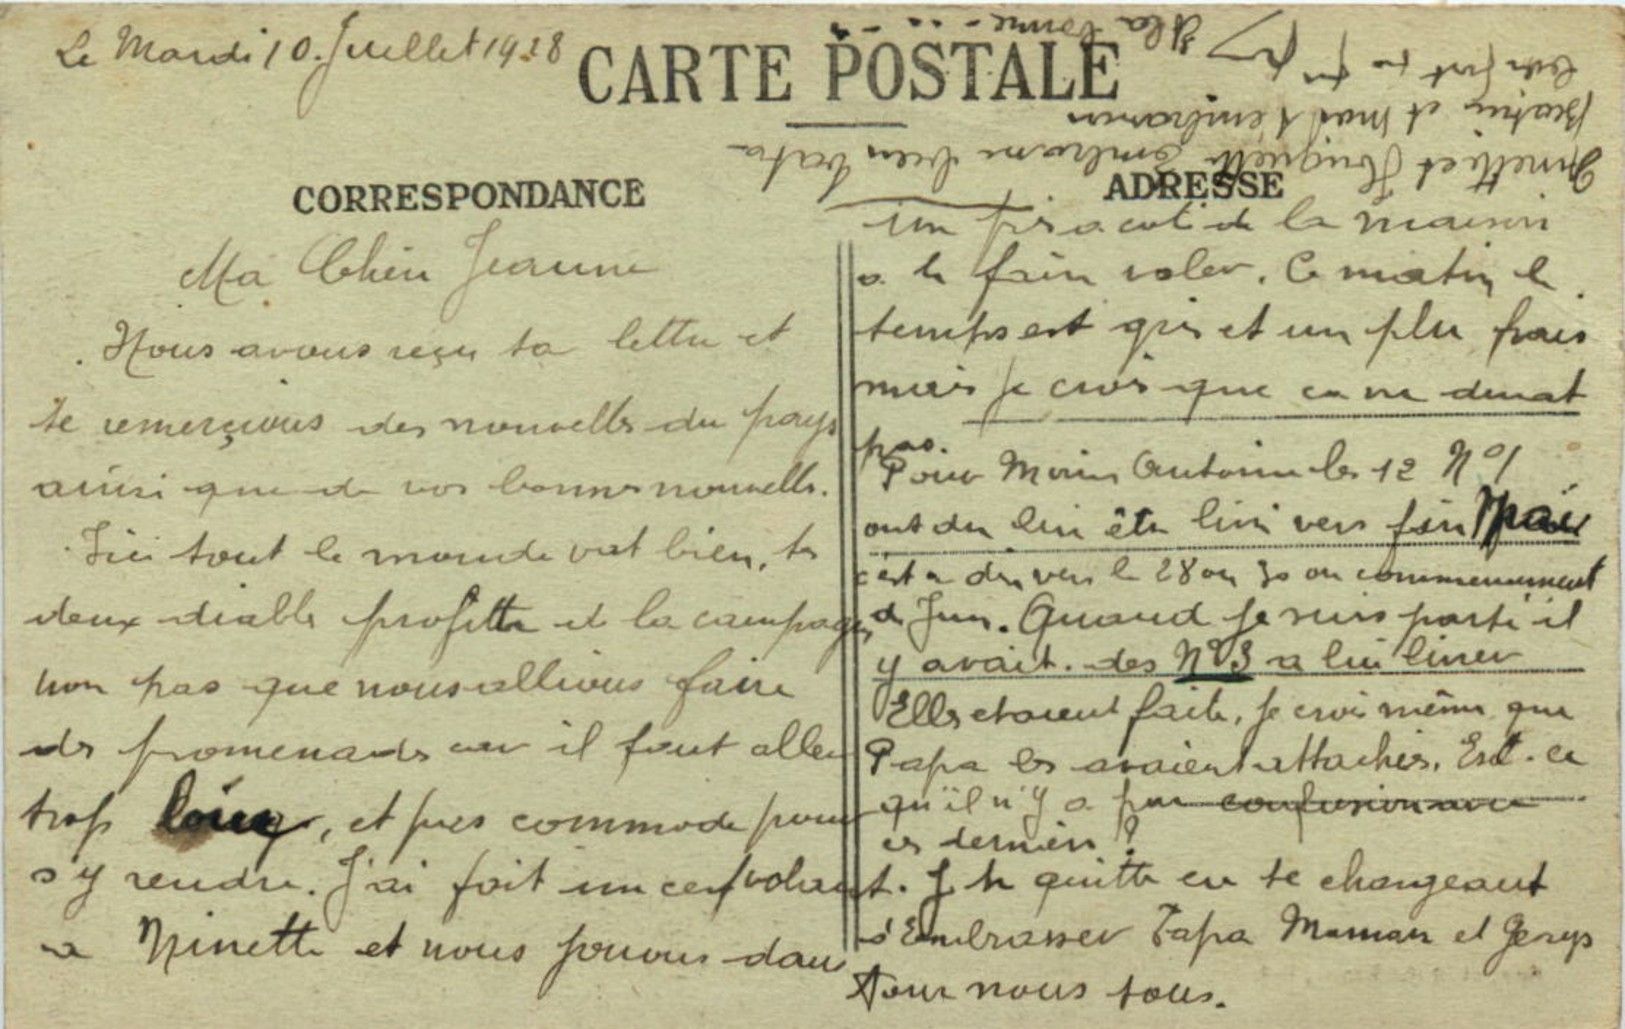 Le Mardi 10 Juillet 1928
CARTE POSTALE
CORRESPONDANCE
Ma Chère Jeanne
Nous avons reçu ta lettre et
te remerçions des nouvelles du pays
ainsi que de vos bonnes nouvelles.
Ici tout le monde vat bien, les
deux diables profitte de la campagne
non pas que nous allions faire
des promenades car il faut aller
trop loing, et pas commode pour
s'y rendre. J'ai fait un cerfvolant
a Ninette et nous pouvons dans
ADRESSE
un pré a coté de la maison
a le faire voler. Ce matin le
temps est gris et un plu frais
mais je crois que ca ne durat
pas.
Pour Antoine les 12 N°1
ont du lui être livré vers fin Mai
c'est a dire vers le 28 ou 30 ou commencement
de Juin. Quand je suis parti il
y avait des N°3 a lui livrer
Elles etaient faite, je crois même que
Papa les avaient attachés. Est-ce
qu'il n'y a pas confusion avec
ces derniers ?
Je te quitte en te chargeant
d'Embrasser Papa Maman et
Pour nous tous.
Ninette et Huguette Embrasse bien tata
et moi t'embrassons
bien fort